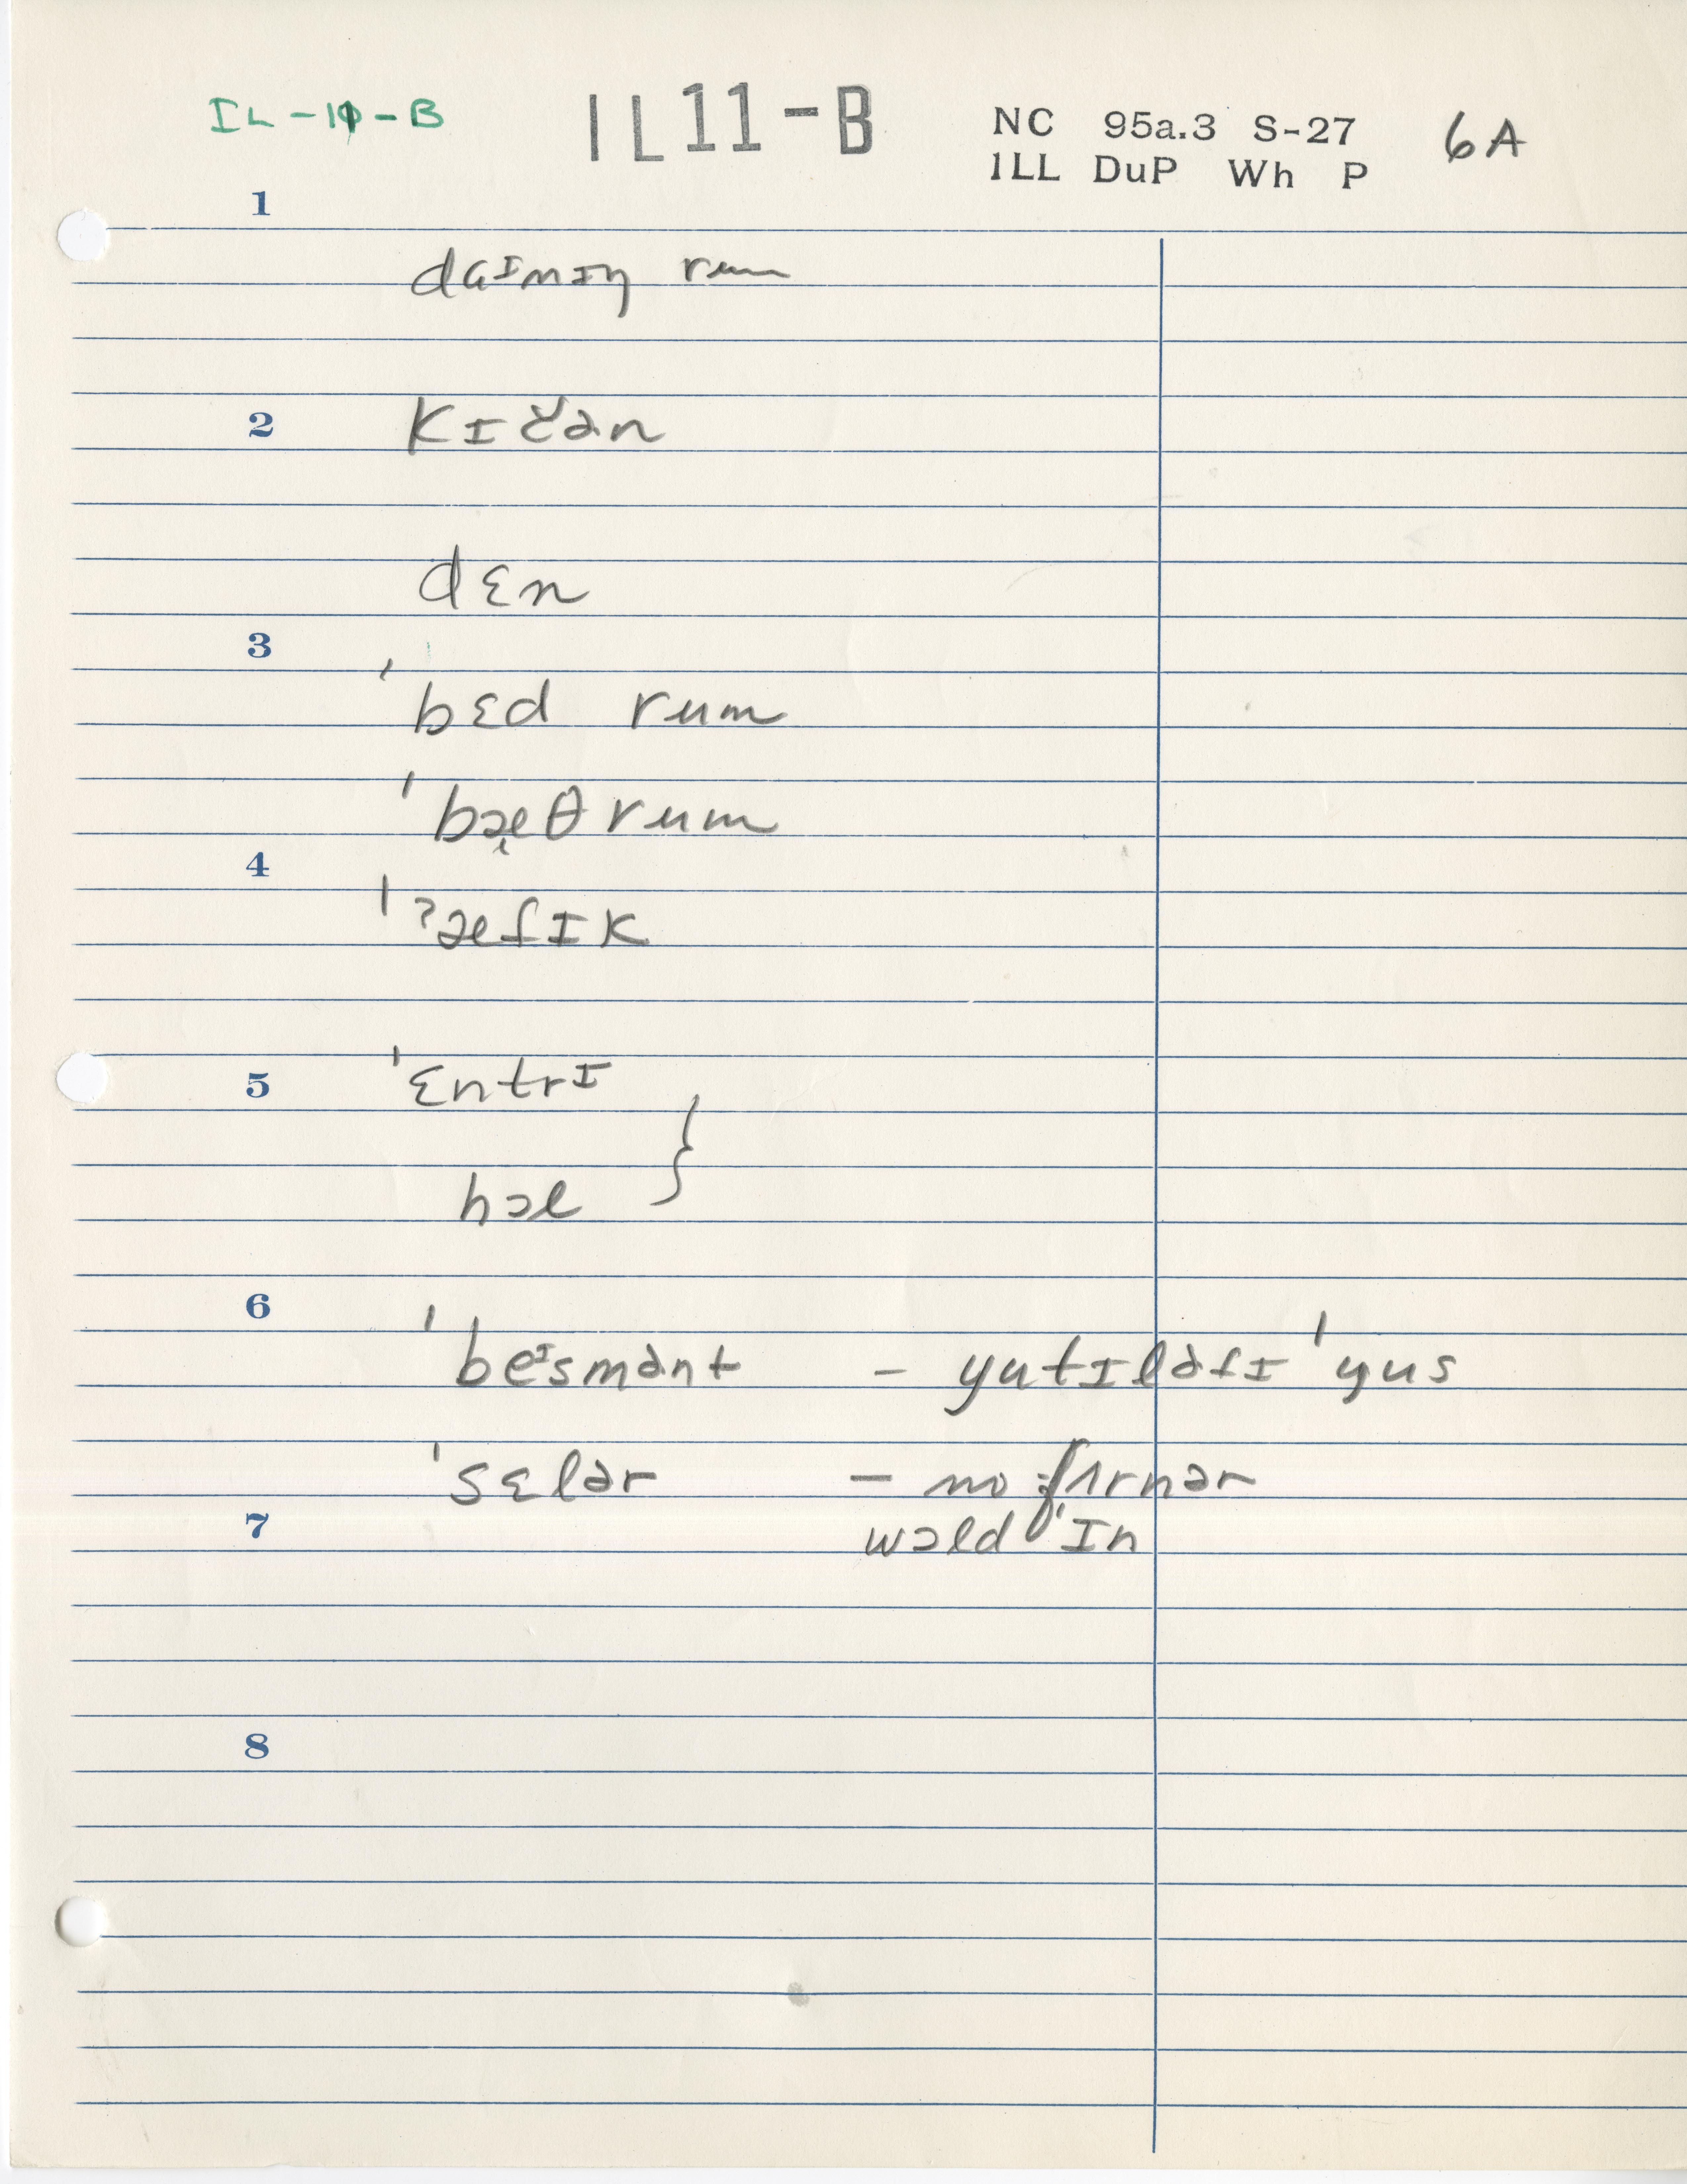 IL-11-B IL11-B NC 95a.3 S-27 6A
ILL DuP Wh P
1
daɪnɪŋ rum
2 kɪč̌ən
dɛn
3
ˈbɛd rum
ˈbæ̨θrum
4
ˈʔæfɪk
5 ˈɛntrɪ
hɔl }
6
ˈbeᶦsmənt – yutɪlətɪ ˈyus
ˈsɛlər – no fɜrnər
7 wɔld ˈɪn
8